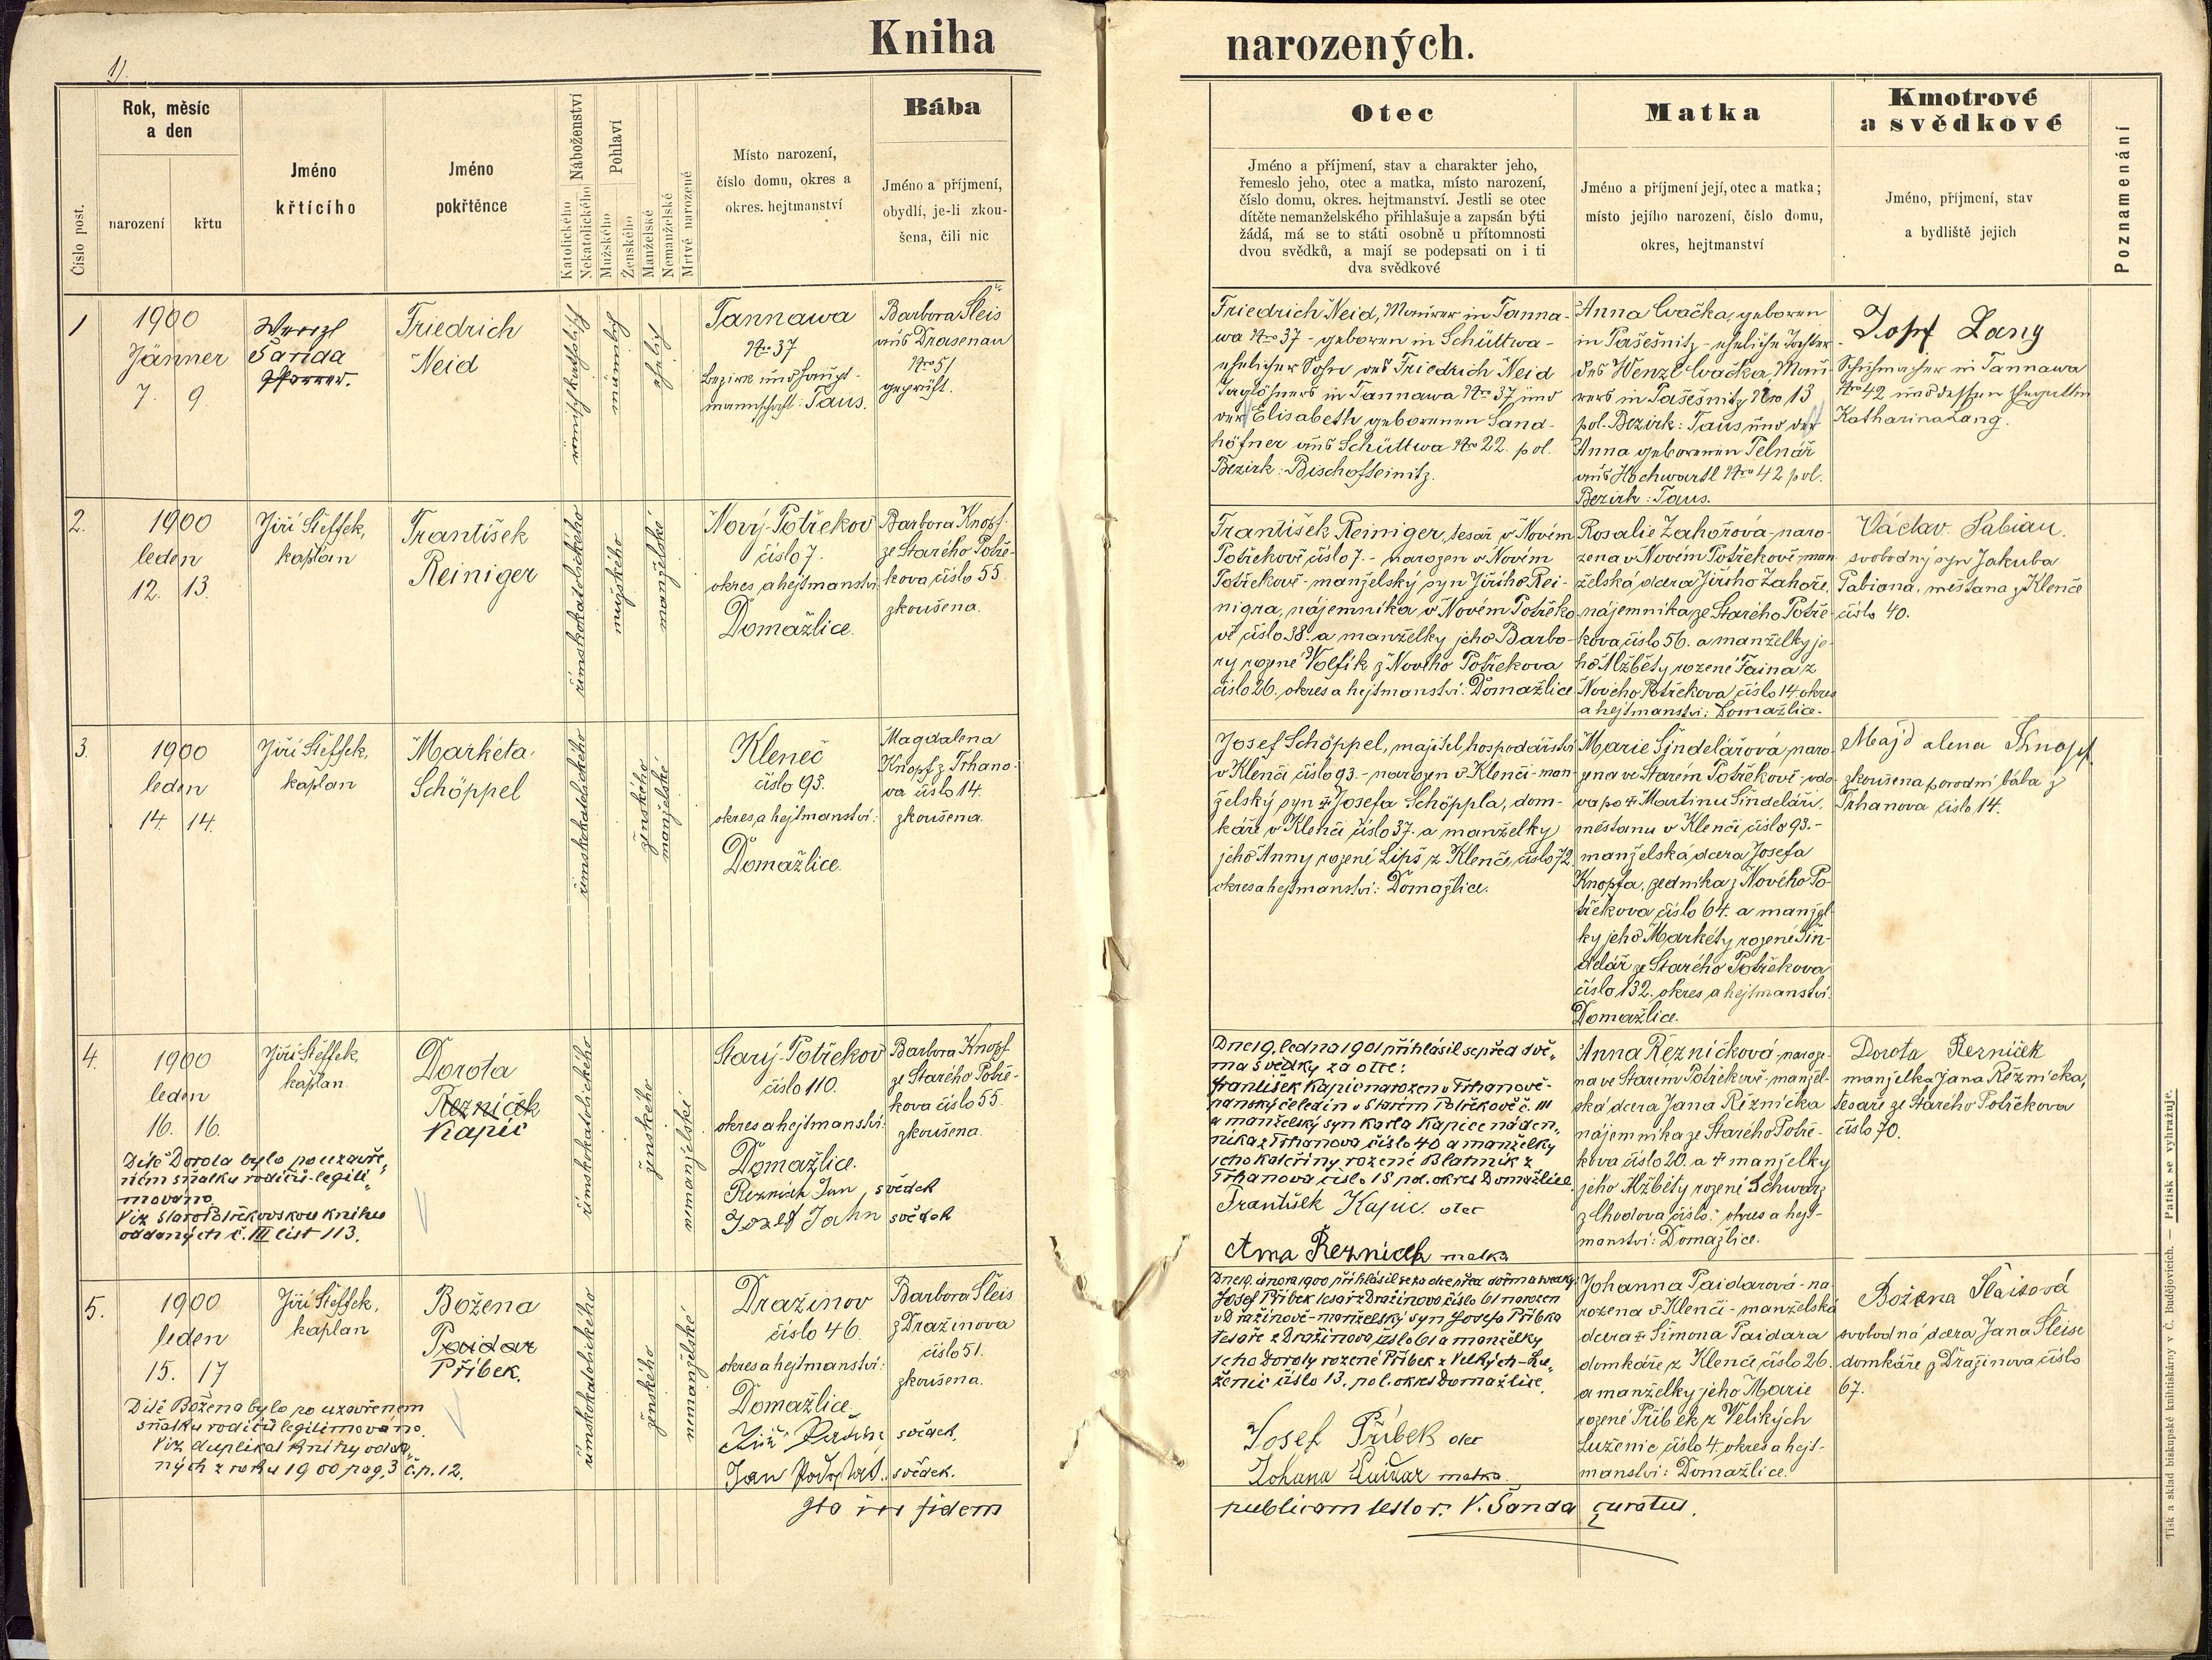 Kniha
narozených.
1).
Číslo post.
Rok, měsíc
a den
narození
křtu
Jméno
křtícího
Jméno
pokřtěnce
Náboženství
Katolického
Nekatolického
Pohlaví
Mužského
Ženského
Manželské
Nemanželské
Mrtvé narozené
Místo narození,
číslo domu, okres a
okres. hejtmanství
Bába
Jméno a příjmení,
obydlí, je-li zkou-
šena, čili nic
Otec
Jméno a příjmení, stav a charakter jeho,
řemeslo jeho, otec a matka, místo narození,
číslo domu, okres. hejtmanství. Jestli se otec
dítěte nemanželského přihlašuje a zapsán býti
žádá, má se to státi osobně u přítomnosti
dvou svědků, a mají se podepsati on i ti
dva svědkové
Matka
Jméno a příjmení její, otec a matka;
místo jejího narození, číslo domu,
okres, hejtmanství
Kmotrové
a svědkové
Jméno, příjmení, stav
a bydliště jejich
Poznamenání
1
1900
Jänner
7. 9.
Wenzl
Šanda
Pfarrer.
Friedrich
Neid
römischkatholisch
männlich
ehelich
Tannawa
Nro 37
Bezirk und Haupt-
mannschaft: Taus.
Barbora Šleis
aus Drasenau
Nro 51
geprüft.
Friedrich Neid, Maurer in Tanna-
wa Nro 37 - geboren in Schüttwa -
ehelicher Sohn des Friedrich Neid
Taglöhners in Tannawa Nro 37 und
der Elisabeth geborenen Sand-
höfner aus Schüttwa Nro 22. pol.
Bezirk: Bischofteinitz.
Anna Cvačka, geboren
in Pašešnitz - eheliche Tochter
des Wenzl Cvačka, Mau-
rers in Pašešnitz Nro 13
pol. Bezirk: Taus und der
Anna geborenen Pelnář
aus Hochwartl Nro 42 pol.
Bezirk: Taus.
Josef Lang
Schuhmacher in Tannawa
Nro 42 und dessen Ehegattin
Katharina Lang.
2.
1900
leden
12. 13.
Jiří Šteffek,
kaplan
František
Reiniger
římskokatolického
mužského
manželské
Nový-Potřekov
číslo 7.
okres a hejtmanství
Domažlice.
Barbora Knopf
ze Starého Potře-
kova číslo 55.
zkoušena.
František Reiniger, tesař v Novém
Potřekově číslo 7. - narozen v Novém
Potřekově - manželský syn Jiřího Rei-
nigra, nájemníka v Novém Potřeko-
vě číslo 38. a manželky jeho Barbo-
ry rozené Volfík z Nového Potřekova
číslo 26. okres a hejtmanství: Domažlice
Rosalie Zahořová - naro-
zena v Novém Potřekově - man-
želská dcera Jiřího Zahoře,
nájemníka ze Starého Potře-
kova, číslo 56. a manželky je-
ho Alžběty rozené Faina z
Nového Potřekova číslo 14. okres
a hejtmanství: Domažlice.
Václav Fabian.
svobodný syn Jakuba
Fabiana, měšťana z Klenče
číslo 40.
3.
1900
leden
14. 14.
Jiří Šteffek,
kaplan
Markéta
Schöppel
římskokatolického
ženského
manželské
Kleneč
číslo 93.
okres a hejtmanství:
Domažlice.
Magdalena
Knopf z Trhano-
va číslo 14.
zkoušena.
Josef Schöppel, majitel hospodářství
v Klenči číslo 93. - narozen v Klenči - man-
želský syn ✝ Josefa Schöppla, dom-
káře v Klenči číslo 37. a manželky
jeho Anny rozené Lipš z Klenče, číslo 72.
okres a hejtmanství: Domažlice.
Marie Šindelářová, naro-
zena ve Starém Potřekově - vdo-
va po ✝ Martinu Šindeláři,
měšťanu v Klenči číslo 93. -
manželská dcera Josefa
Knopfa, zedníka z Nového Po-
třekova číslo 64. a manžel-
ky jeho Markéty rozené Šin-
delář ze Starého Potřekova
číslo 132. okres a hejtmanství:
Domažlice.
Majdalena Knopf
zkoušena porodní bába z
Trhanova číslo 14.
4.
1900
leden
16. 16.
Jiří Šteffek,
kaplan.
Dorota
Řezníček
Kapic
římskokatolického
ženského
nemanželské
Dítě Dorota bylo po uzavře„
ném sňatku rodičů - legiti„
mováno
Viz Staropotřekovskou knihu
oddaných č. III list 113.
Starý-Potřekov
číslo 110.
okres a hejtmanství:
Domažlice.
Řezníček Jan, svědek
Josef Jahn svědek
Barbora Knopf
ze Starého Potře-
kova číslo 55.
zkoušena.
Dne 19. ledna 1901 přihlásil se před dvě„
ma svědky za otce:
František Kapic narozen v Trhanově -
panský čeledín v Starém Potřekově č. 111
a manželský syn Karla Kapice náden„
níka z Trhanova číslo 40 a manželky
jeho Kateřiny rozené Blatník z
Trhanova číslo 15 pol. okres Domažlice.
František Kapic. otec
Anna Řezniček matka
Anna Řezníčková - naroze-
na ve Starém Potřekově - manžel-
ská dcera Jana Řezníčka
nájemníka ze Starého Potře-
kova číslo 20. a ✝ manželky
jeho Alžběty rozené Schwarz
z Chodova číslo: okres a hejt-
manství: Domažlice.
Dorota Řezníček
manželka Jana Řezníčka,
tesaře ze Starého Potřekova
číslo 70.
5.
1900
leden
15. 17
Jiří Šteffek,
kaplan
Božena
Paidar
Příbek.
římskokatolického
ženského
nemanželské
Dítě Božena bylo po uzavřeném
sňatku rodičů legitimováno.
Viz duplikat knihy odda„
ných z roku 1900 pag. 3 č. p. 12.
Dražinov
číslo 46.
okres a hejtmanství:
Domažlice.
svědek,
Jan svědek.
Barbora Šleis
z Dražinova
číslo 51.
zkoušena.
Dne 19. února 1900 přihlásil se za otce před dvěma svědky
Josef Příbek tesař z Dražinova číslo 61 narozen
v Dražinově - manželský syn Josefa Příbka
tesaře z Dražinova, číslo 61 a manželky
jeho Doroty rozené Příbek z Velkých - Lu„
ženic číslo 13. pol. okres Domažlice.
Josef Příbek otec
Johana Paidar matka.
Johanna Paidarová - na-
rozena v Klenči - manželská
dcera ✝ Šimona Paidara
domkáře z Klenče číslo 26.
a manželky jeho Marie
rozené Příbek z Velikých
Luženic číslo 4. okres a hejt-
manství: Domažlice.
Božena Šlaisová
svobodná dcera Jana Šleise
domkáře z Dražinova číslo
67.
in fidem
publicam testor. V. Šanda curatus.
Tisk a sklad biskupské knihtiskárny v Č. Budějovicích. — Patisk se vyhražuje.